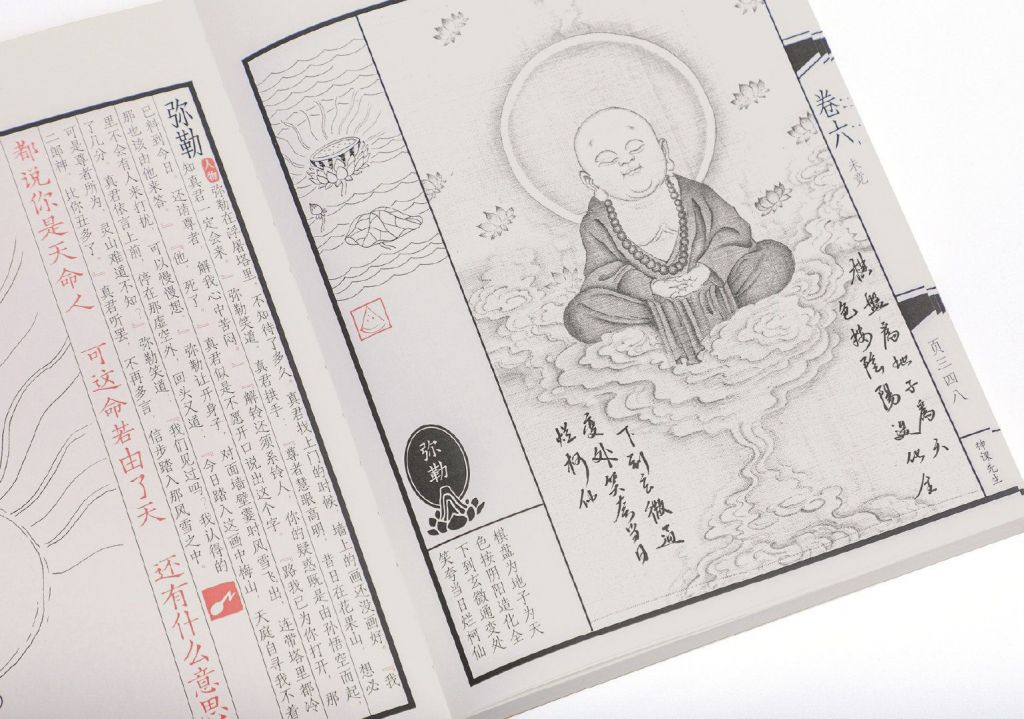 卷六,未竟
页三四八
棋盤為地子為天
色按陰陽造化全
下到玄微通
變處笑夸當日
爛柯仙
弥勒
棋盘为地子为天
色按阴阳造化全
下到玄微通变处
笑夸当日烂柯仙
弥勒
人物
弥勒在浮屠塔里,不知待了多久,真君找上门的时候,墙上的画还没画好。『我
知真君一定会来。』弥勒笑道。真君拱手,『尊者慧眼高明。昔日在花果山,想必
已料到今日,还请尊者解我心中苦闷。』『解铃还须系铃人,你的疑惑既是由孙悟空而起,
那也该由他来答。』『他,死了。』真君似是不愿开口说出这个字。『路我已为你打开,那
里不会有人来打扰,可以慢慢想。』弥勒让开身子,对面墙壁霎时风雪飞出,连带塔里都冷
了几分。真君依言上前,停在那虚空外,回头又道:『今日踏入这画中梅山,天庭自寻我不着,
可是尊者所为,灵山难道不知?』弥勒笑道,『我们见过吗?我认得的
二郎神,比你丑多了。』真君听罢,不再多言,信步踏入那风雪之中。
都说你是天命人 可这命若由了天 还有什么意思